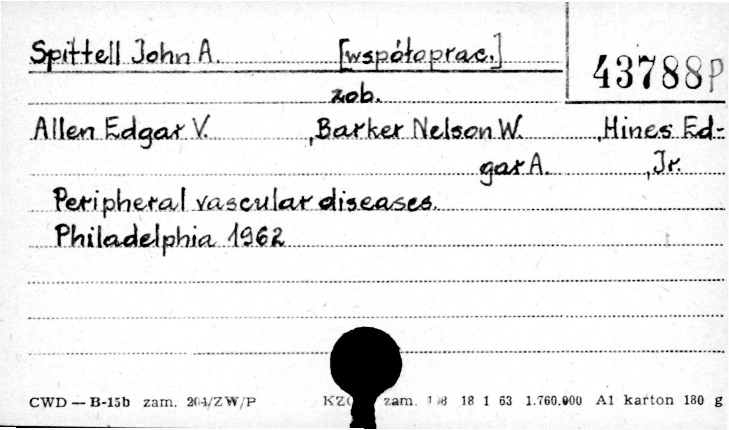 Spittell John A. [współoprac.]
43788P
zob.
Allen Edgar V. , Barker Nelson W. , Hines Ed-
gar A. , Jr.
Peripheral vascular diseases.
Philadelphia 1962
CWD — B-15b zam. 204/ZW/P KZ zam. 18 1 63 1.760.000 A1 karton 180 g